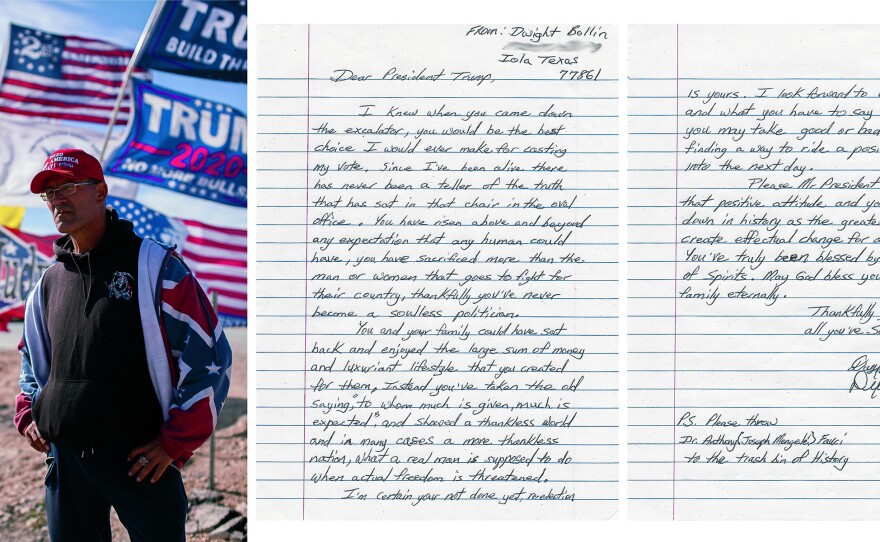 TRU
BUILD TH
2
TRUM
2020
NO MORE BULLS
AMERICA
From: Dwight Bollin
Iola Texas
77861
Dear President Trump,
I knew when you came down
the excalator, you would be the best
choice I would ever make for casting
my vote. Since I've been alive there
has never been a teller of the truth
that has sat in that chair in the oval
office. You have risen above and beyond
any expectation that any human could
have, you have sacrificed more than the
man or women that goes to fight for
their country, thankfully you've never
become a soulless politician.
You and your family could have sat
back and enjoyed the large sum of money
and luxuriant lifestyle that you created
for them. Instead you've taken the old
saying, "to whom much is given, much is
expected", and showed a thankless world
and in many cases a more thankless
nation, what a real man is supposed to do
when actual freedom is threatened.
I'm certain your not done yet, reelection
is yours. I look forward to
and what you have to say
you may take good or bad
finding a way to ride a posi
into the next day.
Please Mr. President
that positive attitude and yo
down in history as the greate
create effectual change for a
You've truly been blessed by
of Spirits. May God bless you
family eternally.
Thankfully
all you've S
P.S. Please throw
Dr. Anthony (Joseph Mengele) Fauci
to the trash bin of History